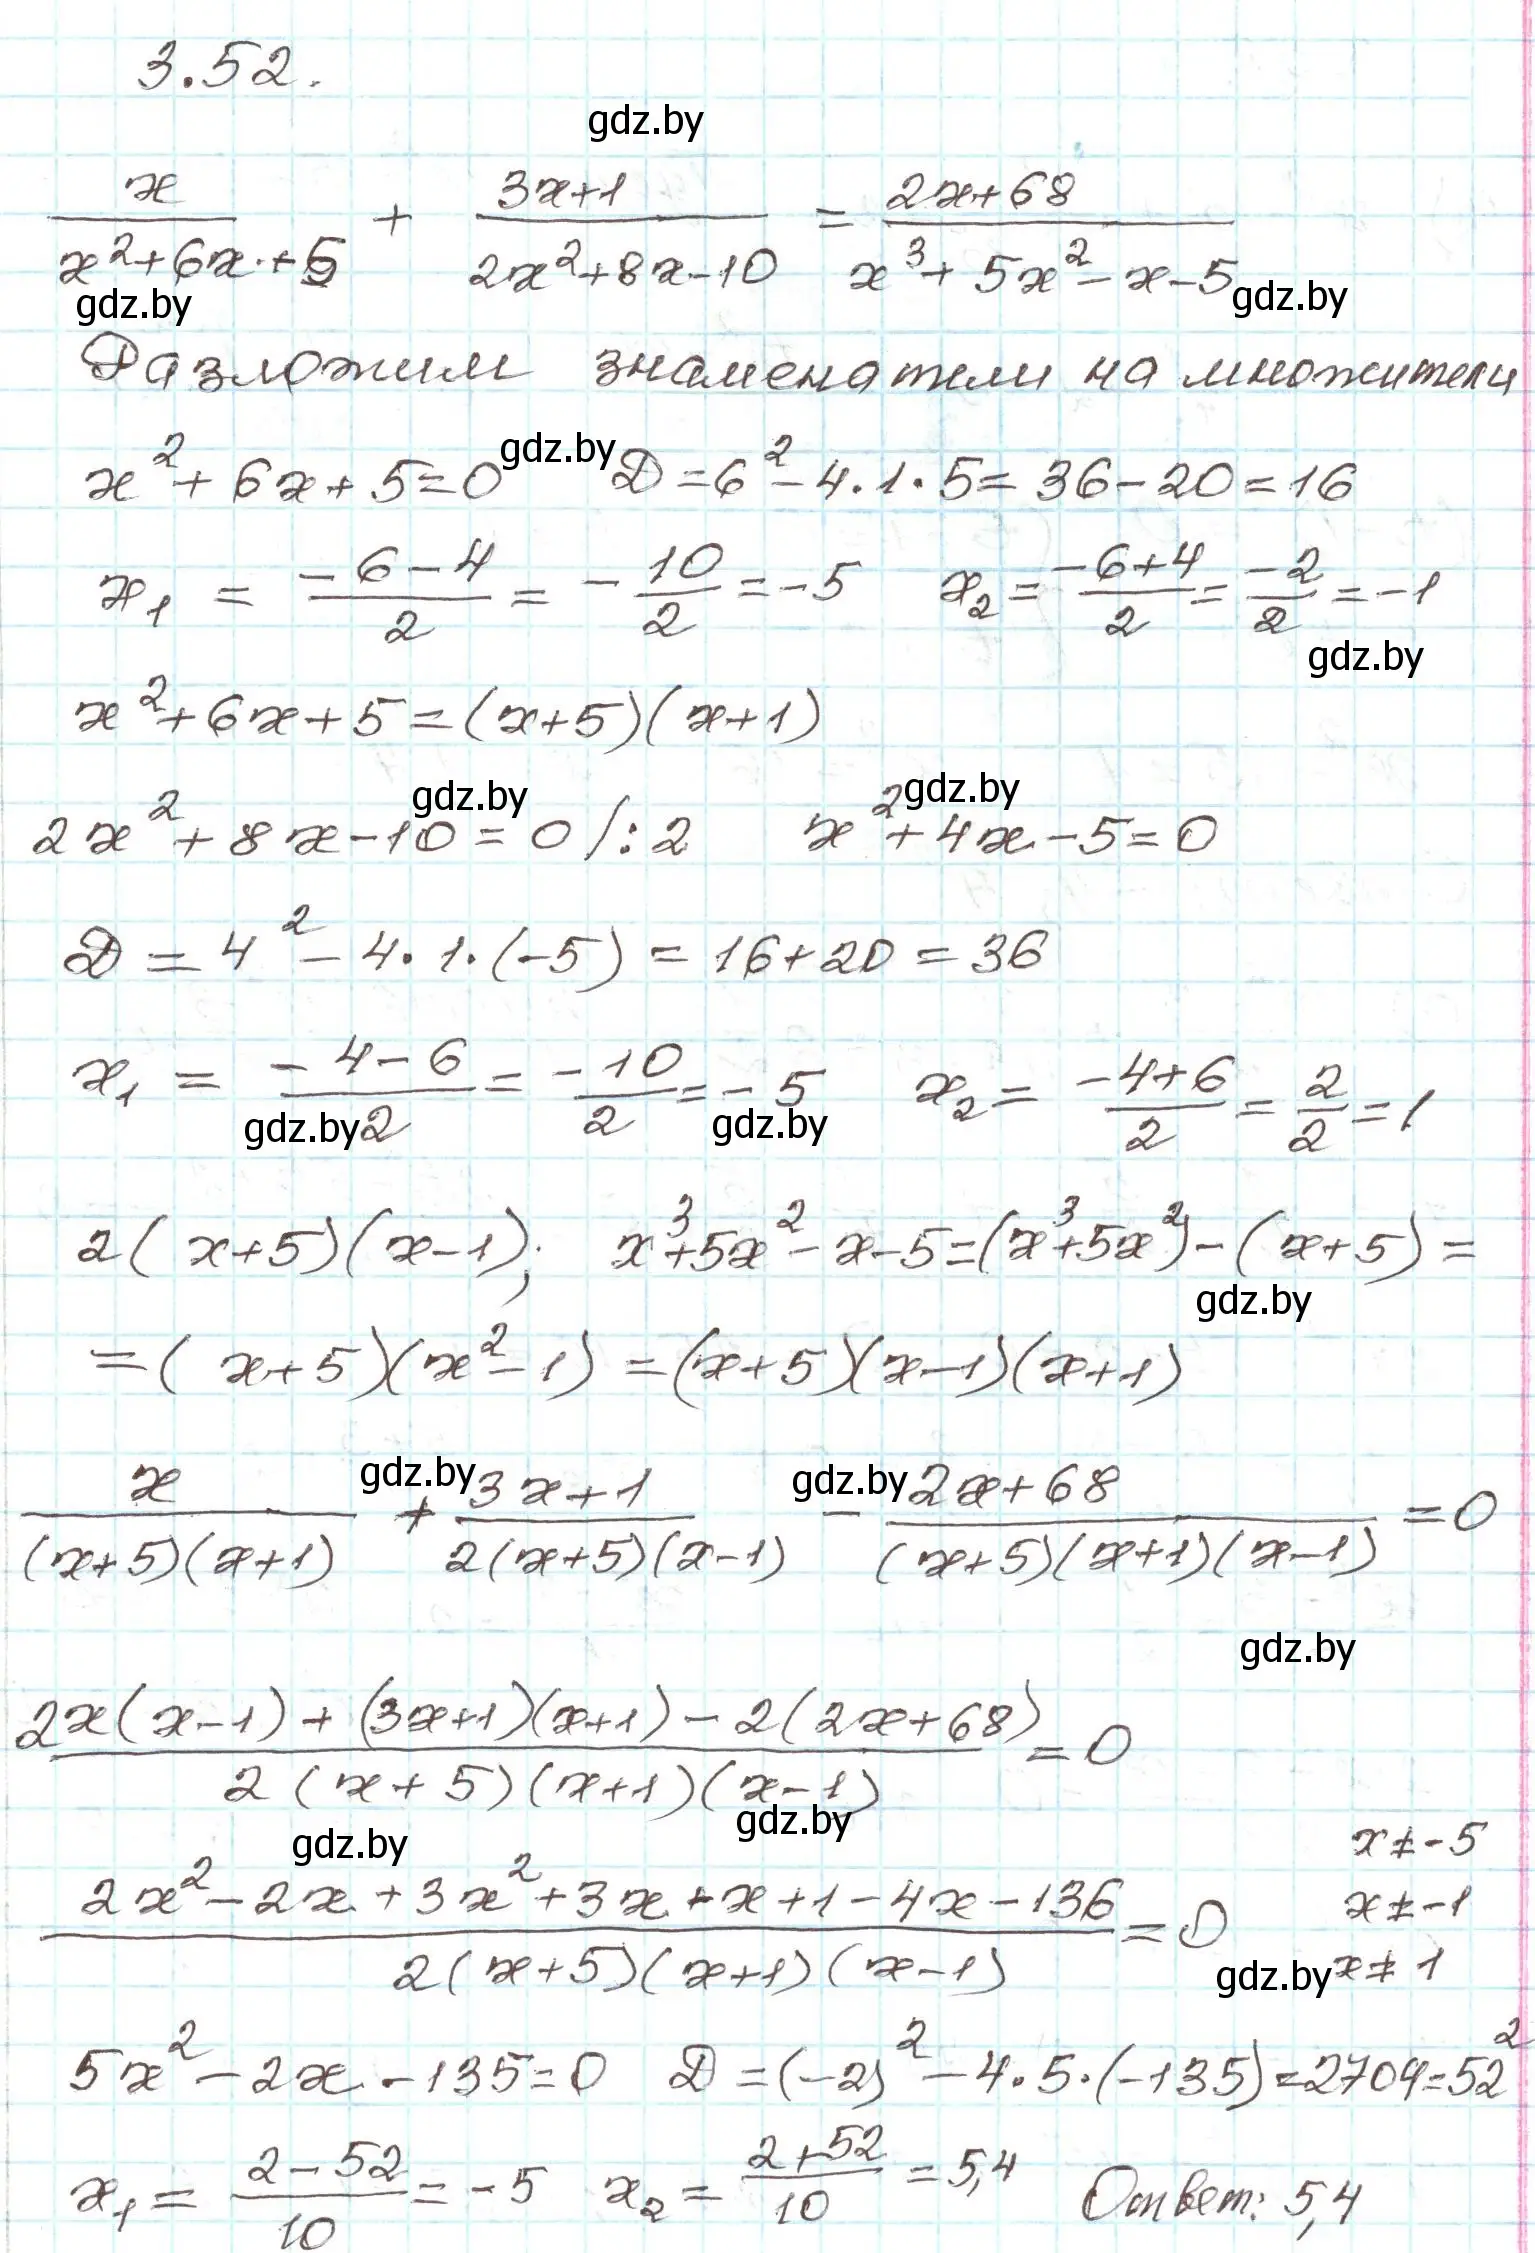 3.52.
gdz.by
x/(x²+6x+5) + (3x+1)/(2x²+8x-10) = (2x+68)/(x³+5x²-x-5)
gdz.by gdz.by
Разложим знаменатели на множители
x²+6x+5=0 gdz.by Д=6²-4·1·5=36-20=16
x₁ = (-6-4)/2 = -10/2 = -5 x₂ = (-6+4)/2 = -2/2 = -1
gdz.by
x²+6x+5=(x+5)(x+1)
gdz.by gdz.by
2x²+8x-10=0 /:2 x²+4x-5=0
Д = 4²-4·1·(-5) = 16+20 = 36
x₁ = (-4-6)/2 = -10/2 = -5 x₂ = (-4+6)/2 = 2/2 = 1
gdz.by gdz.by
2(x+5)(x-1); x³+5x²-x-5=(x³+5x²)-(x+5)=
gdz.by
=(x+5)(x²-1)=(x+5)(x-1)(x+1)
gdz.by gdz.by
x/((x+5)(x+1)) + (3x+1)/(2(x+5)(x-1)) - (2x+68)/((x+5)(x+1)(x-1)) = 0
gdz.by
(2x(x-1)+(3x+1)(x+1)-2(2x+68))/(2(x+5)(x+1)(x-1)) = 0
gdz.by gdz.by
x≠-5
(2x²-2x+3x²+3x+x+1-4x-136)/(2(x+5)(x+1)(x-1)) = 0 x≠-1
gdz.by x≠1
5x²-2x-135=0 Д=(-2)²-4·5·(-135)=2704=52²
x₁ = (2-52)/10 = -5 x₂ = (2+52)/10 = 5,4 Ответ: 5,4